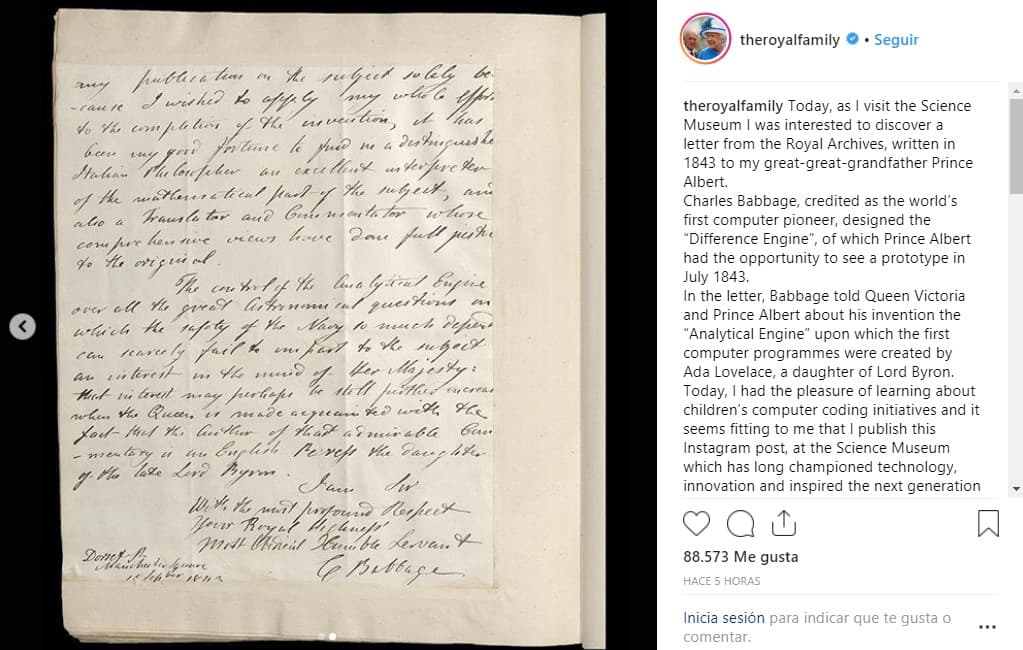 my publication on the subject solely be-
-cause I wished to apply my whole effort
to the completion of the invention, it has
been my good fortune to find in a distinguishe
Italian Philosopher an excellent interpreter
of the mathematical part of the subject, and
also a Translator and Commentator whose
comprehensive views have done full justice
to the original.
The control of the Analytical Engine
over all the great Astronomical questions on
which the safety of the Navy so much depend
can scarcely fail to impart to the subject
an interest in the mind of Her Majesty:
that interest may perhaps be still further increas
when the Queen is made acquainted with the
fact that the Author of that admirable Com
-mentary is an English Peeress the daughter
of the late Lord Byron.
I am Sir
With the most profound Respect
Your Royal Highness'
Most Obedient Humble Servant
C Babbage
Dorset St
Manchester Square
Septber 1843
theroyalfamily • Seguir
theroyalfamily Today, as I visit the Science
Museum I was interested to discover a
letter from the Royal Archives, written in
1843 to my great-great-grandfather Prince
Albert.
Charles Babbage, credited as the world's
first computer pioneer, designed the
“Difference Engine”, of which Prince Albert
had the opportunity to see a prototype in
July 1843.
In the letter, Babbage told Queen Victoria
and Prince Albert about his invention the
“Analytical Engine” upon which the first
computer programmes were created by
Ada Lovelace, a daughter of Lord Byron.
Today, I had the pleasure of learning about
children's computer coding initiatives and it
seems fitting to me that I publish this
Instagram post, at the Science Museum
which has long championed technology,
innovation and inspired the next generation
88.573 Me gusta
HACE 5 HORAS
Inicia sesión para indicar que te gusta o
comentar.